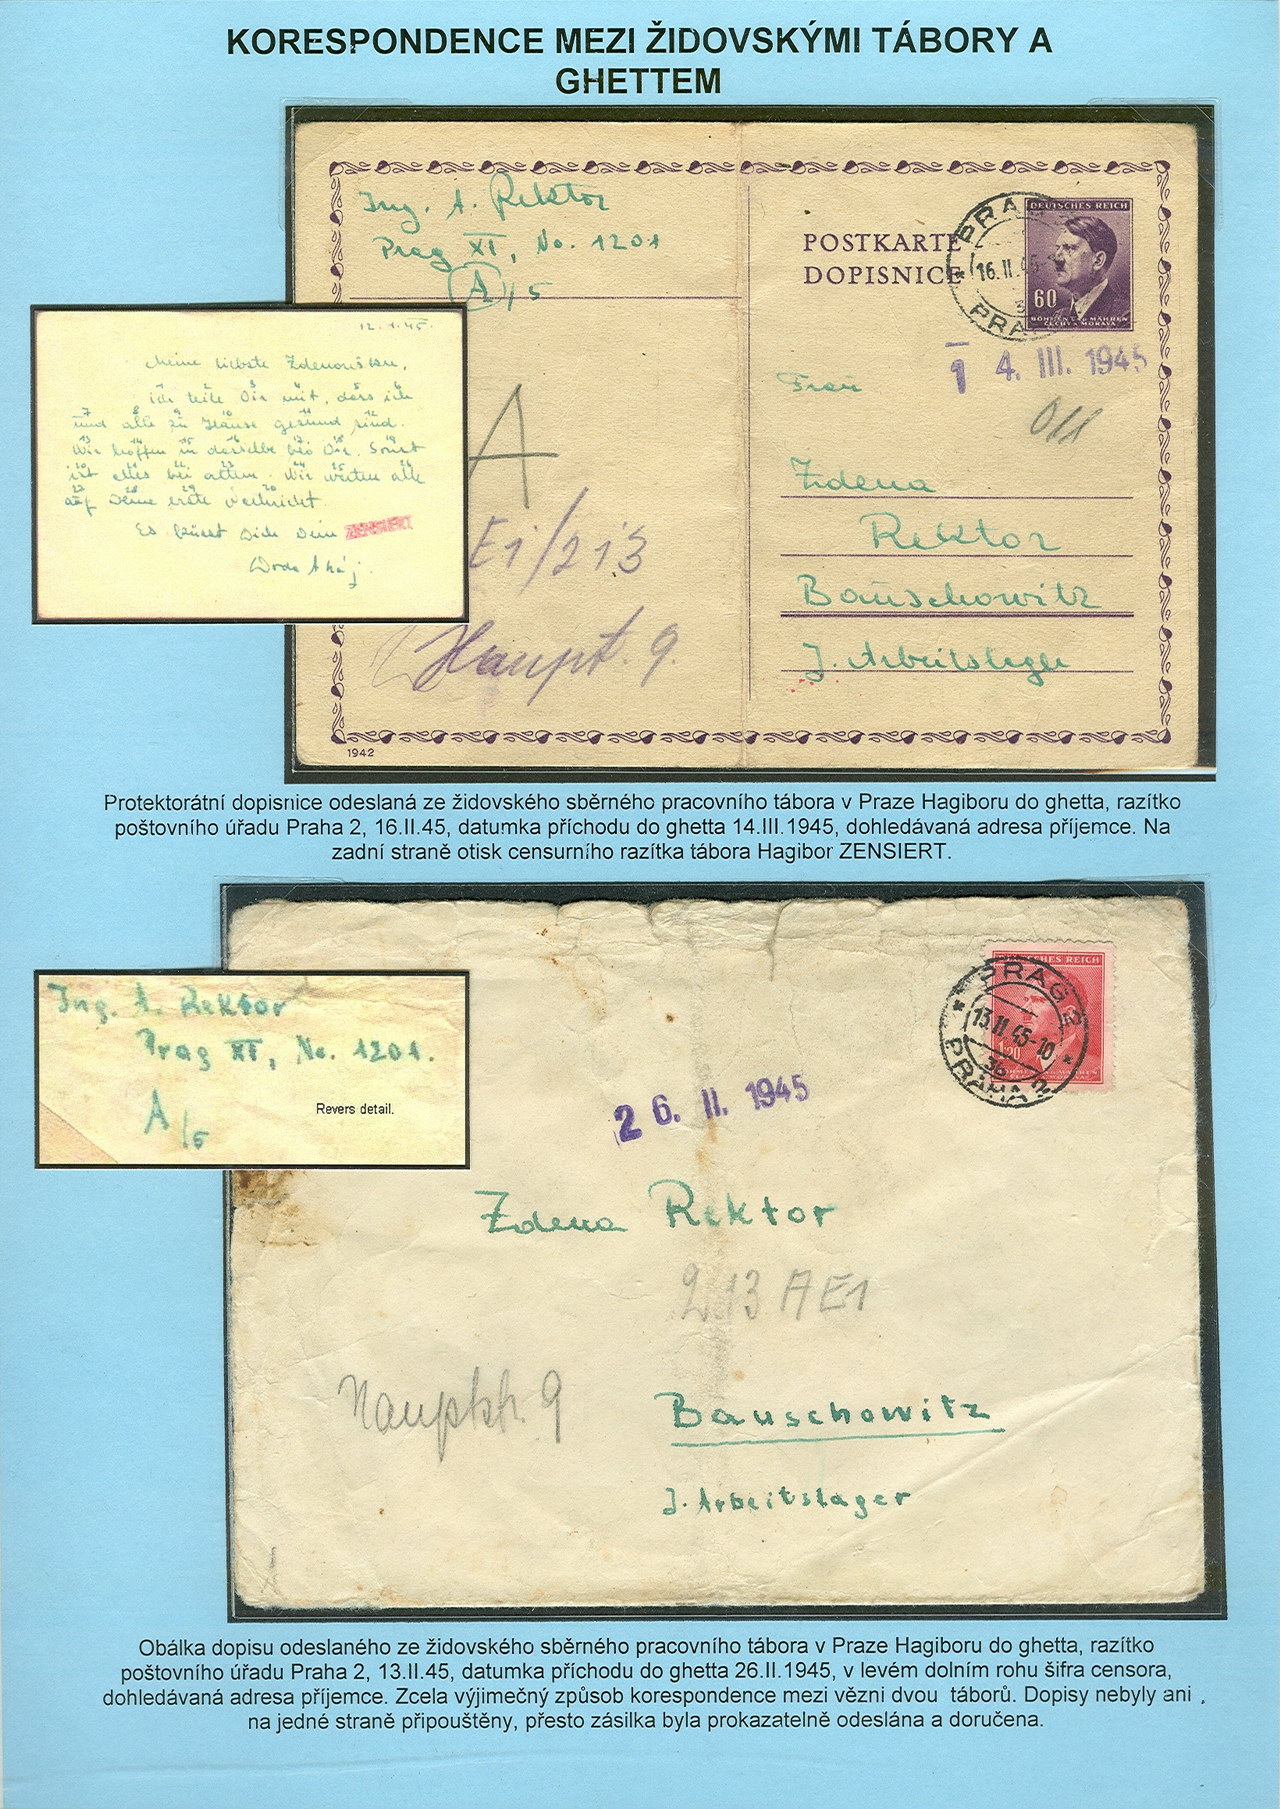 KORESPONDENCE MEZI ŽIDOVSKÝMI TÁBORY A
GHETTEM
Ing. A. Rektor
Prag XI, No. 1201
A/5
POSTKARTE
DOPISNICE
DEUTSCHES REICH
60
BÖHMEN u. MÄHREN
ČECHY a MORAVA
PRAG
16.II.45
PRA
14. III. 1945
Frau
Zdena
Rektor
Bauschowitz
J. Arbeitslager
A
E1/213
Haupt. 9.
1942
12.1.45.
Meine liebste
ich teile Dir mit, dass ich
und alle zu Hause gesund sind.
Wir hoffen dasselbe bei Dir. Sonst
ist alles bei altem. Wir warten alle
auf Deine erste Nachricht.
Es küsst Dich Dein
ZENSIERT
Protektorátní dopisnice odeslaná ze židovského sběrného pracovního tábora v Praze Hagiboru do ghetta, razítko
poštovního úřadu Praha 2, 16.II.45, datumka příchodu do ghetta 14.III.1945, dohledávaná adresa příjemce. Na
zadní straně otisk censurního razítka tábora Hagibor ZENSIERT.
DEUTSCHES REICH
1.20
BÖHMEN u. MÄHREN
PRAG 2
13.II.45-10
36
PRAHA 2
Ing. A. Rektor
Prag XI, No. 1201.
A/5
Revers detail.
26. II. 1945
Zdena Rektor
213 AE1
Hauptstr. 9
Bauschowitz
J. Arbeitslager
Obálka dopisu odeslaného ze židovského sběrného pracovního tábora v Praze Hagiboru do ghetta, razítko
poštovního úřadu Praha 2, 13.II.45, datumka příchodu do ghetta 26.II.1945, v levém dolním rohu šifra censora,
dohledávaná adresa příjemce. Zcela výjimečný způsob korespondence mezi vězni dvou táborů. Dopisy nebyly ani
na jedné straně připouštěny, přesto zásilka byla prokazatelně odeslána a doručena.